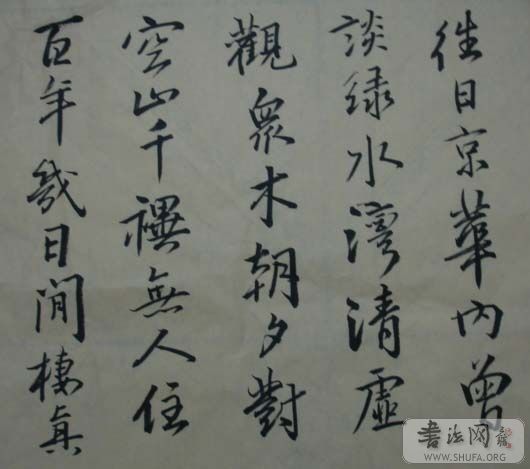 往日京華內曾
談緑水灣清虛
觀衆木朝夕對
空山千禩無人住
百年幾日閒棲真
書法网
WWW.SHUFA.ORG